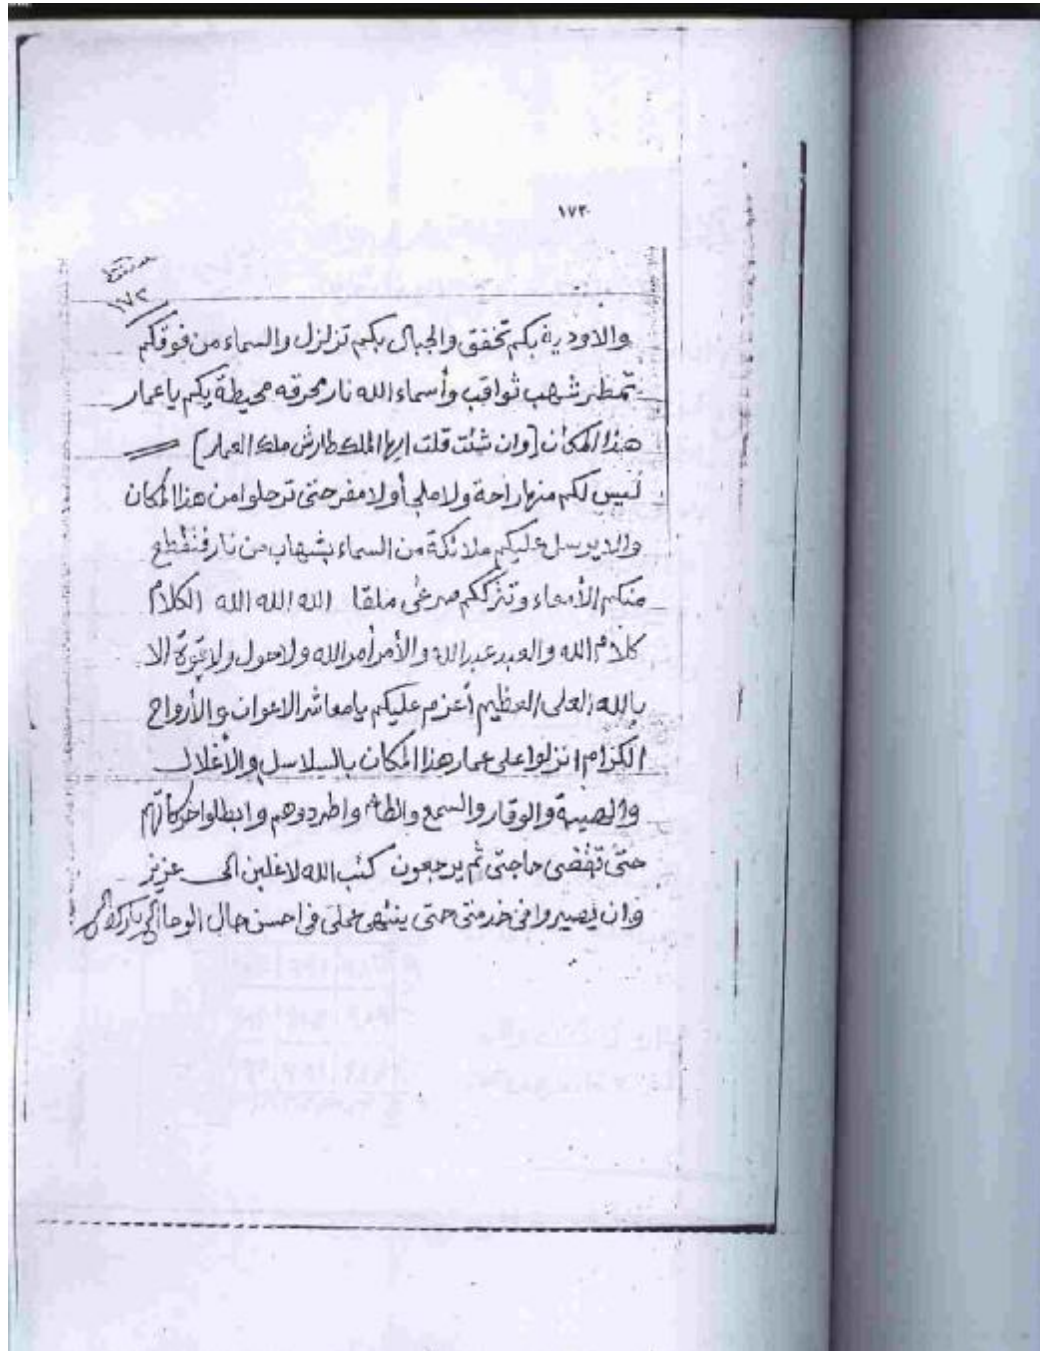 ١٧٢
١٧٢
والاودية بكم تخفق والجبال بكم تزلزل والسماء من فوقكم
تمطر شهب ثواقب وأسماء الله نار محرقه محيطة بكم ياعمار
هذا المكان [وان شئت قلت ايها الملك طارش ملك العمار]
ليس لكم منها راحة ولا ملجأ ولا مفر حتى ترحلوا من هذا المكان
والا يرسل عليكم ملائكة من السماء بشهاب من نار فتقطع
منكم الأمعاء وتترككم صرعى ملقا الله الله الله الكلام
كلام الله والعبد عبد الله والأمر أمر الله ولا حول ولا قوة الا
بالله العلى العظيم أعزم عليكم يا معاشر الاعوان والأرواح
الكرام انزلوا على عمار هذا المكان بالسلاسل والأغلال
والهيبة والوقار والسمع والطاعه واطردوهم وابطلوا حركاتهم
حتى تقضى حاجتى ثم يرجعون كتب الله لاغلبن الى عزيز
وان يصيروا فى خدمتى حتى ينتهى عملى فى احسن حال الوحا